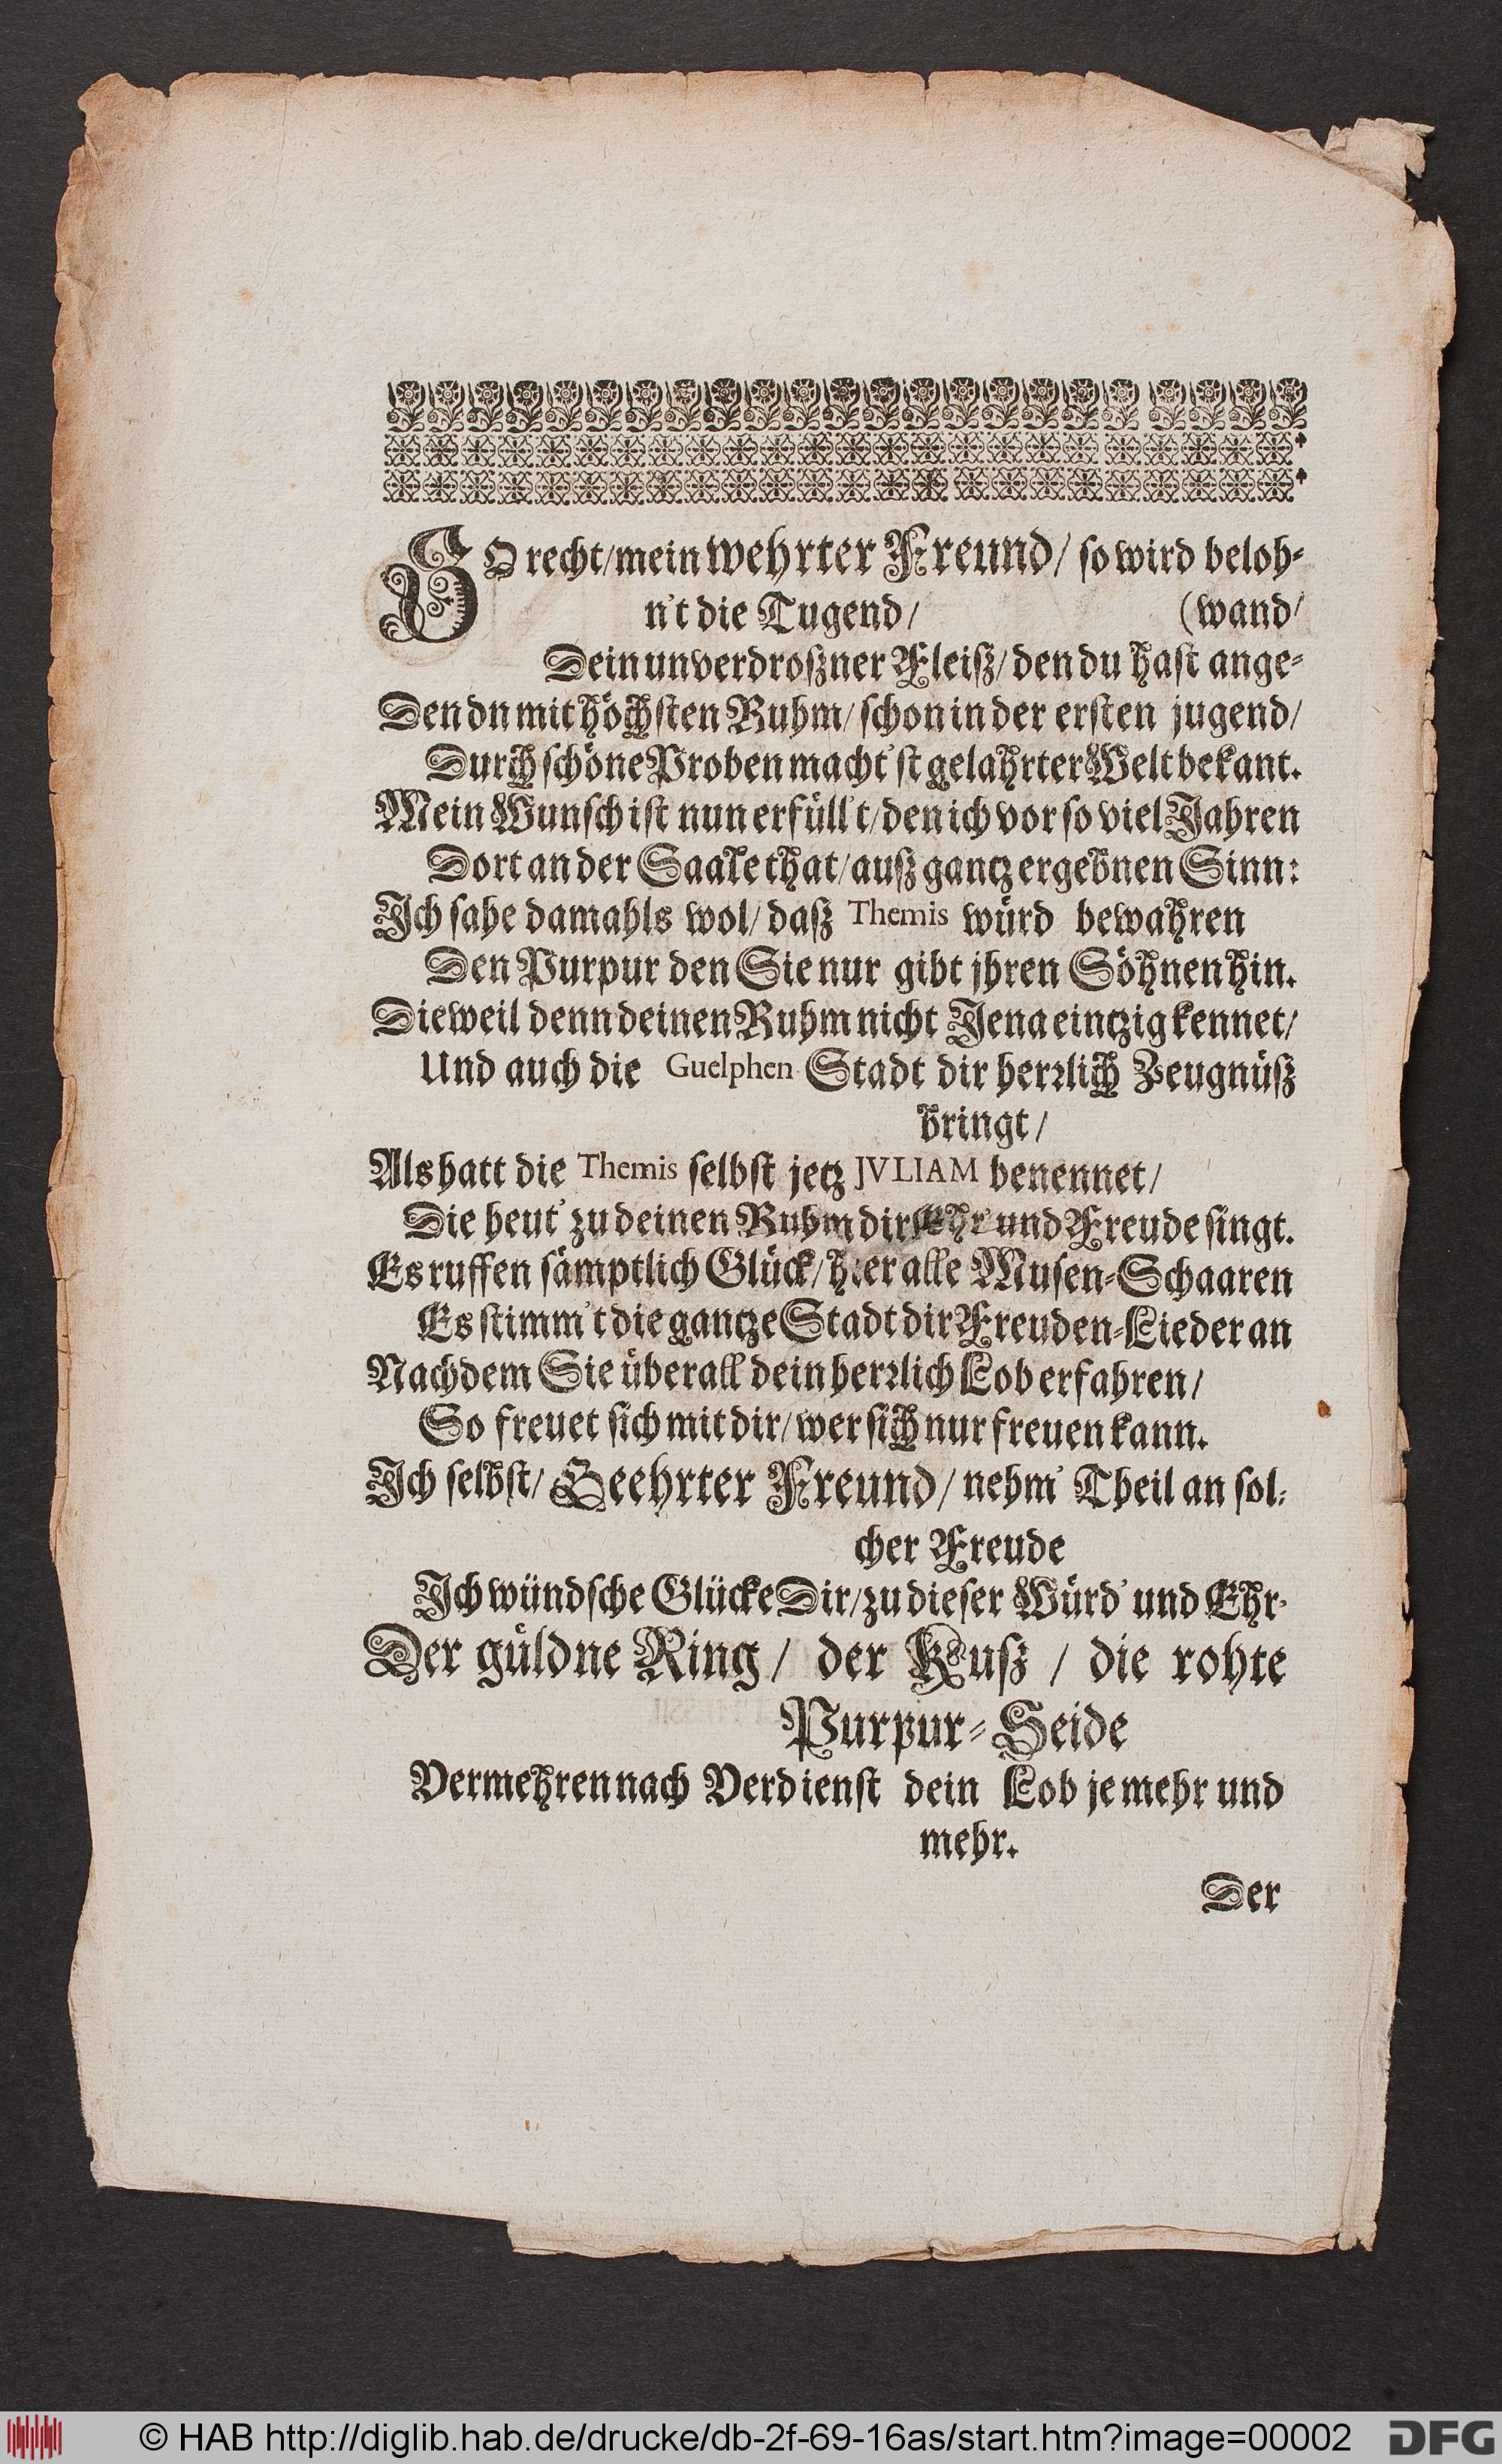 SO recht/mein wehrter Freund/ so wird beloh-
n't die Tugend/ (wand/
Dein unverdroßner Fleiß/den du hast ange-
Den dn mit höchsten Ruhm/schon in der ersten jugend/
Durch schöne Proben macht'st gelahrter Welt bekant.
Mein Wunsch ist nun erfüll't/den ich vor so viel Jahren
Dort an der Saale that/auß gantz ergebnen Sinn:
Ich sahe damahls wol/ daß Themis würd bewahren
Den Purpur den Sie nur gibt jhren Söhnen hin.
Dieweil denn deinen Ruhm nicht Jena eintzig kennet/
Und auch die Guelphen Stadt dir herꝛlich Zeugnüß
bringt/
Als hatt die Themis selbst jetz JVLIAM benennet/
Die heut' zu deinen Ruhm dir Ehr' und Freude singt.
Es ruffen sämptlich Glück/hier alle Musen-Schaaren
Es stimm't die gantze Stadt dir Freuden-Lieder an
Nachdem Sie überall dein herꝛlich Lob erfahren/
So freuet sich mit dir/wer sich nur freuen kann.
Ich selbst/ Geehrter Freund/ nehm' Theil an sol-
cher Freude
Ich wündsche Glücke Dir/zu dieser Würd' und Ehr-
Der güldne Ring/ der Kuß / die rohte
Purpur-Seide
Vermehren nach Verdienst dein Lob je mehr und
mehr.
Der
© HAB http://diglib.hab.de/drucke/db-2f-69-16as/start.htm?image=00002
DFG